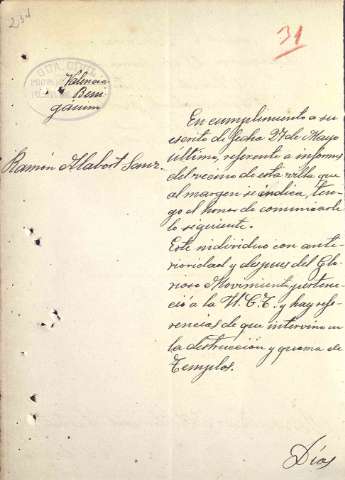 234
31
GDA. CIVIL
Valencia
Beni
gánim
En cumplimiento a su
escrito de fecha 27 de Mayo
último, referente a informes
Ramón Alabort Sanz.
del vecino de esta villa que
al margen se indica, ten-
go el honor de comunicarle
lo siguiente.
Este individuo con ante-
rioridad y despues del Glo-
rioso Movimiento, pertene-
ció a la U.G.T. y hay refe-
rencias de que intervino en
la destrucción y quema de
Templos.
Dios